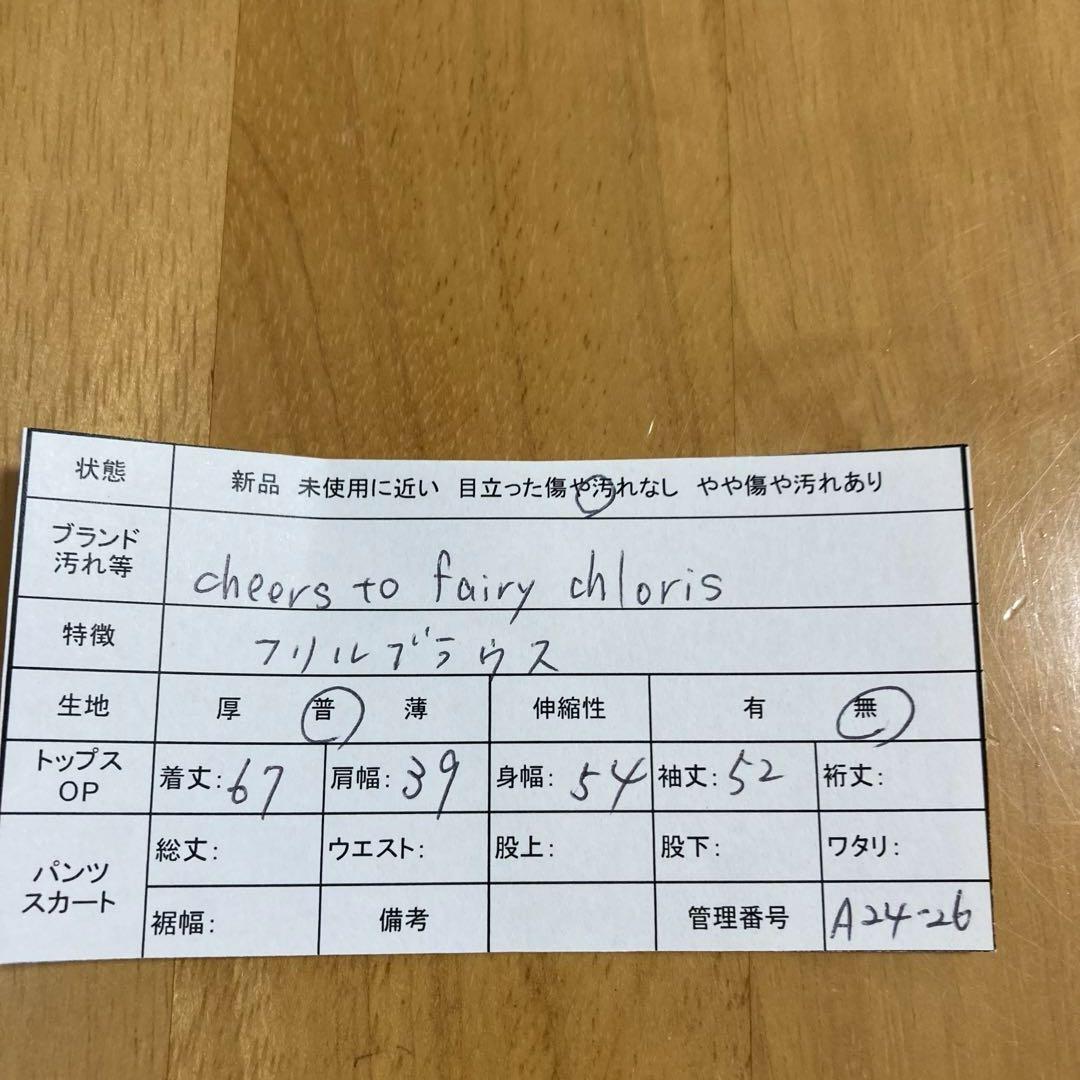 状態 新品 未使用に近い 目立った傷や汚れなし やや傷や汚れあり
ブランド
汚れ等 cheers to fairy chloris
特徴 フリルブラウス
生地 厚 普 薄 伸縮性 有 無
トップス
OP 着丈:67 肩幅:39 身幅:54 袖丈:52 裄丈:
パンツ
スカート 総丈: ウエスト: 股上: 股下: ワタリ:
裾幅: 備考 管理番号 A24-26